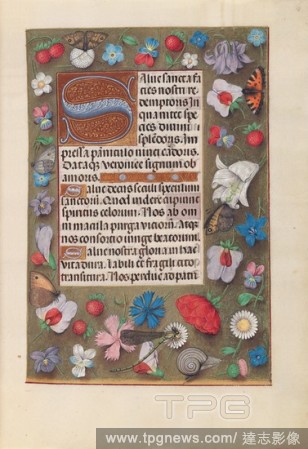 Salve sancta fa
cies nostri re
demptoris In
qua nitet spe
cies divini
splendoris. Im
pressa panniculo nivei cadoris.
Dataq; veronice signum ob
amoris.
Salve decus seculi speculum
sanctorum. Quod videre cupiunt
spiritus celorum. Nos ab om
ni macula purga viciorum. Atq;
nos consortio iunge beatorum.
Salve nostra gloria in hac
vita dura. labili et fragili cito
transitura. Nos perduc ad patri
TPG
www.tpgnews.com/達志影像